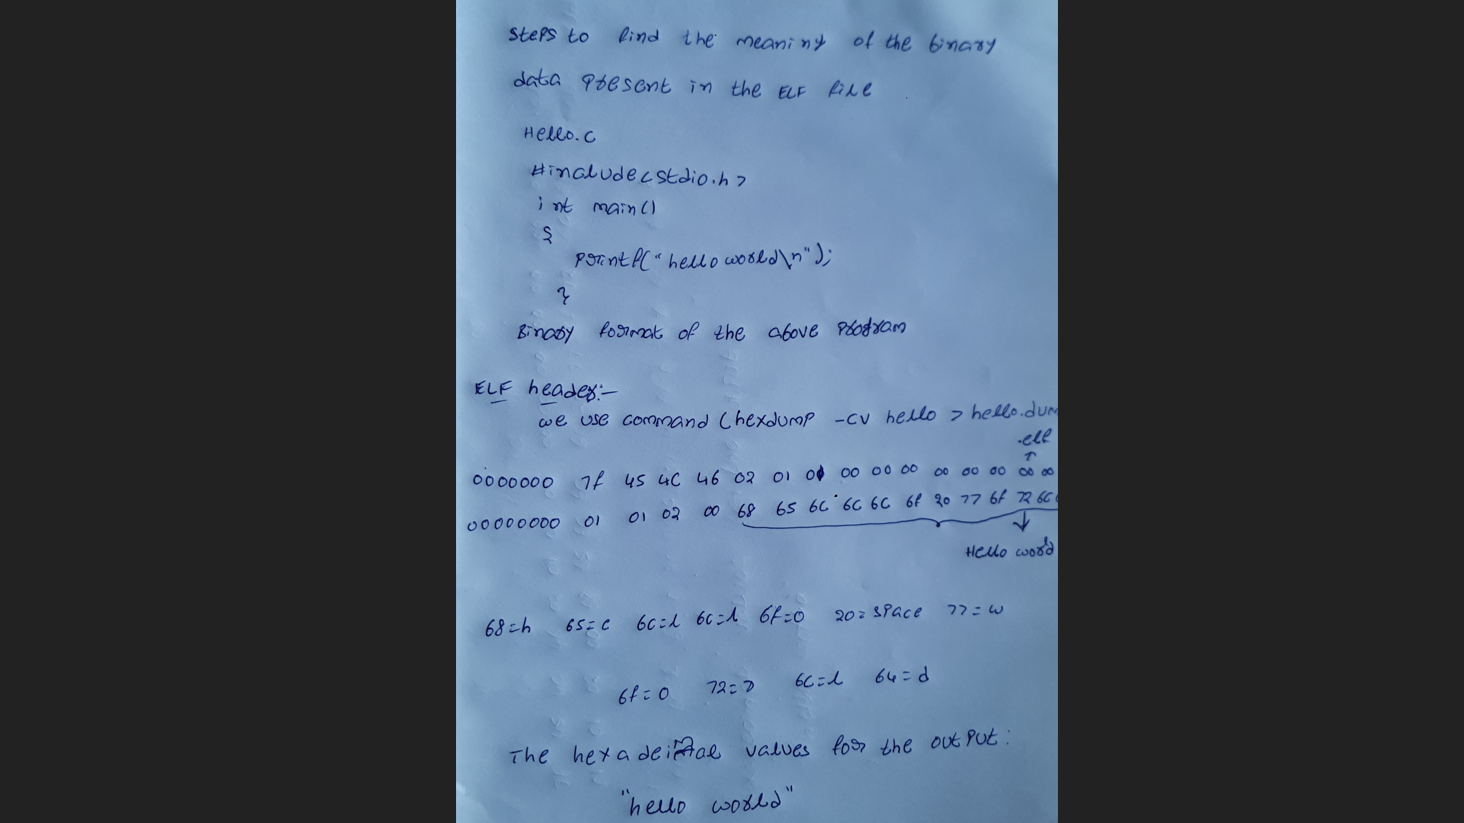 Steps to find the meaning of the binary
data present in the ELF file
Hello.c
#include<stdio.h>
int main()
{
printf("hello world\n");
}
Binary format of the above Program
ELF header:-
we use command (hexdump -cv hello > hello.dum
.elf
0000000 7f 45 4C 46 02 01 01 00 00 00 00 00 00 00 00
00000000 01 01 02 00 68 65 6C 6C 6C 6f 20 77 6f 72 6C
Hello world
68=h 65=e 6C=l 6C=l 6f=o 20=space 77=w
6f=o 72=r 6C=l 64=d
The hexadeimal values for the output:
"hello world"